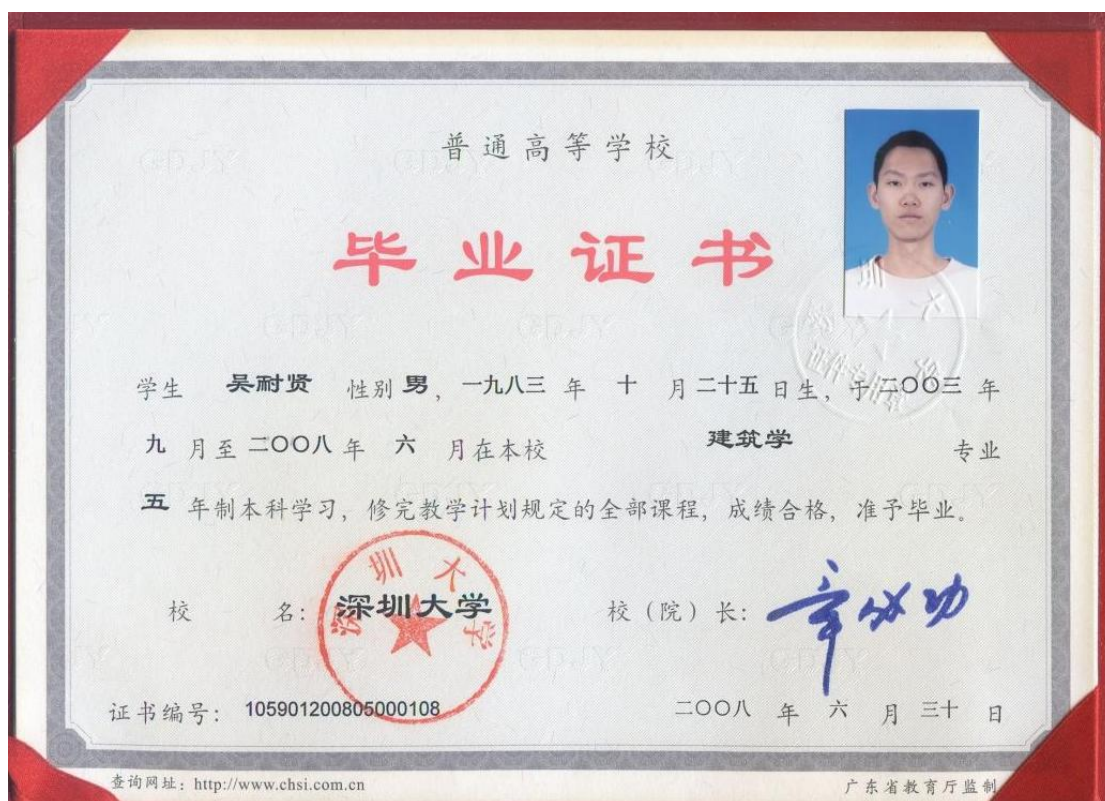 普通高等学校
毕业证书
学生 吴耐贤 性别 男, 一九八三 年 十 月 二十五 日生, 于 二〇〇三 年
九 月至 二〇〇八 年 六 月在本校 建筑学 专业
五 年制本科学习, 修完教学计划规定的全部课程, 成绩合格, 准予毕业。
校 名: 深圳大学 校（院）长: 章必功
深圳大学
证书编号: 105901200805000108 二〇〇八 年 六 月 三十 日
查询网址: http://www.chsi.com.cn 广东省教育厅监制